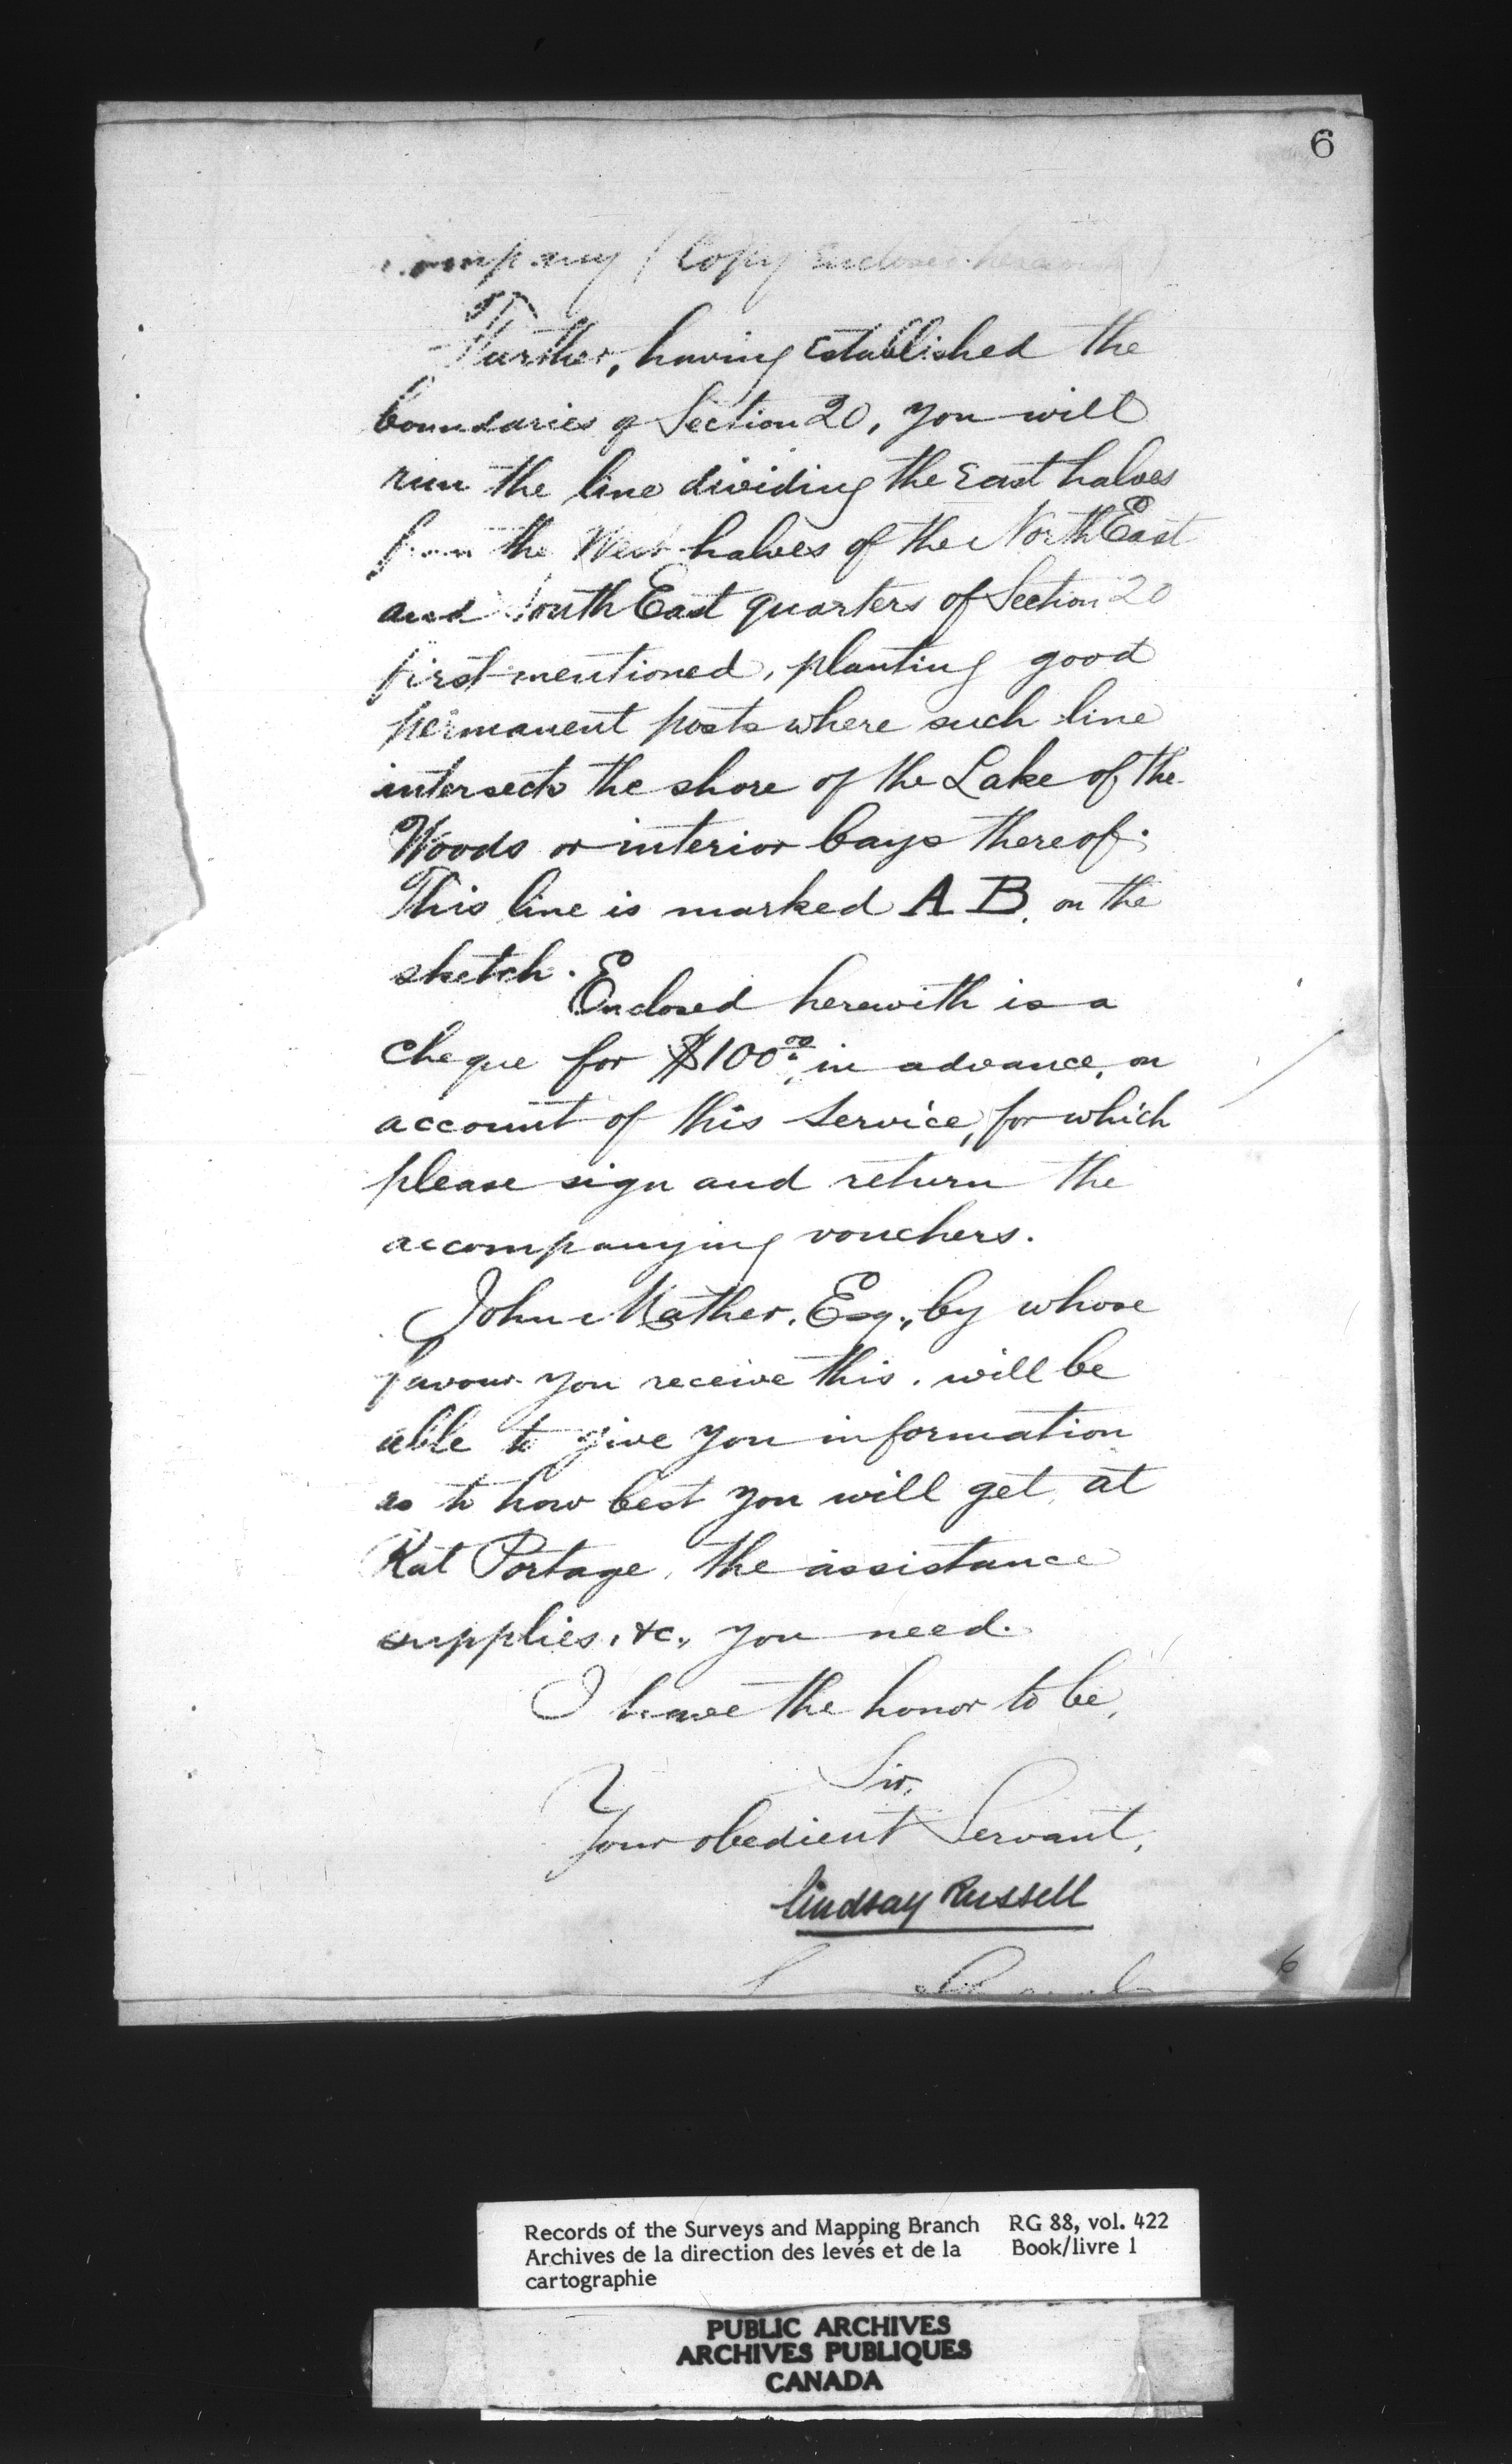 6
Company (Copy enclosed herewith)
Further, having established the
boundaries of Section 20, you will
run the line dividing the East halves
from the West halves of the North East
and South East quarters of Section 20
first mentioned, planting good
permanent posts where such line
intersects the shore of the Lake of the
Woods or interior bays thereof.
This line is marked A B. on the
sketch.
Enclosed herewith is a
cheque for $100.00, in advance, on
account of this service, for which
please sign and return the
accompanying vouchers.
John Mather, Esq., by whose
favour you receive this, will be
able to give you information
as to how best you will get, at
Rat Portage, the assistance
supplies, &c., you need.
I have the honor to be,
Sir,
Your obedient Servant,
Lindsay Russell
6
Records of the Surveys and Mapping Branch RG 88, vol. 422
Archives de la direction des levés et de la Book/livre 1
cartographie
PUBLIC ARCHIVES
ARCHIVES PUBLIQUES
CANADA